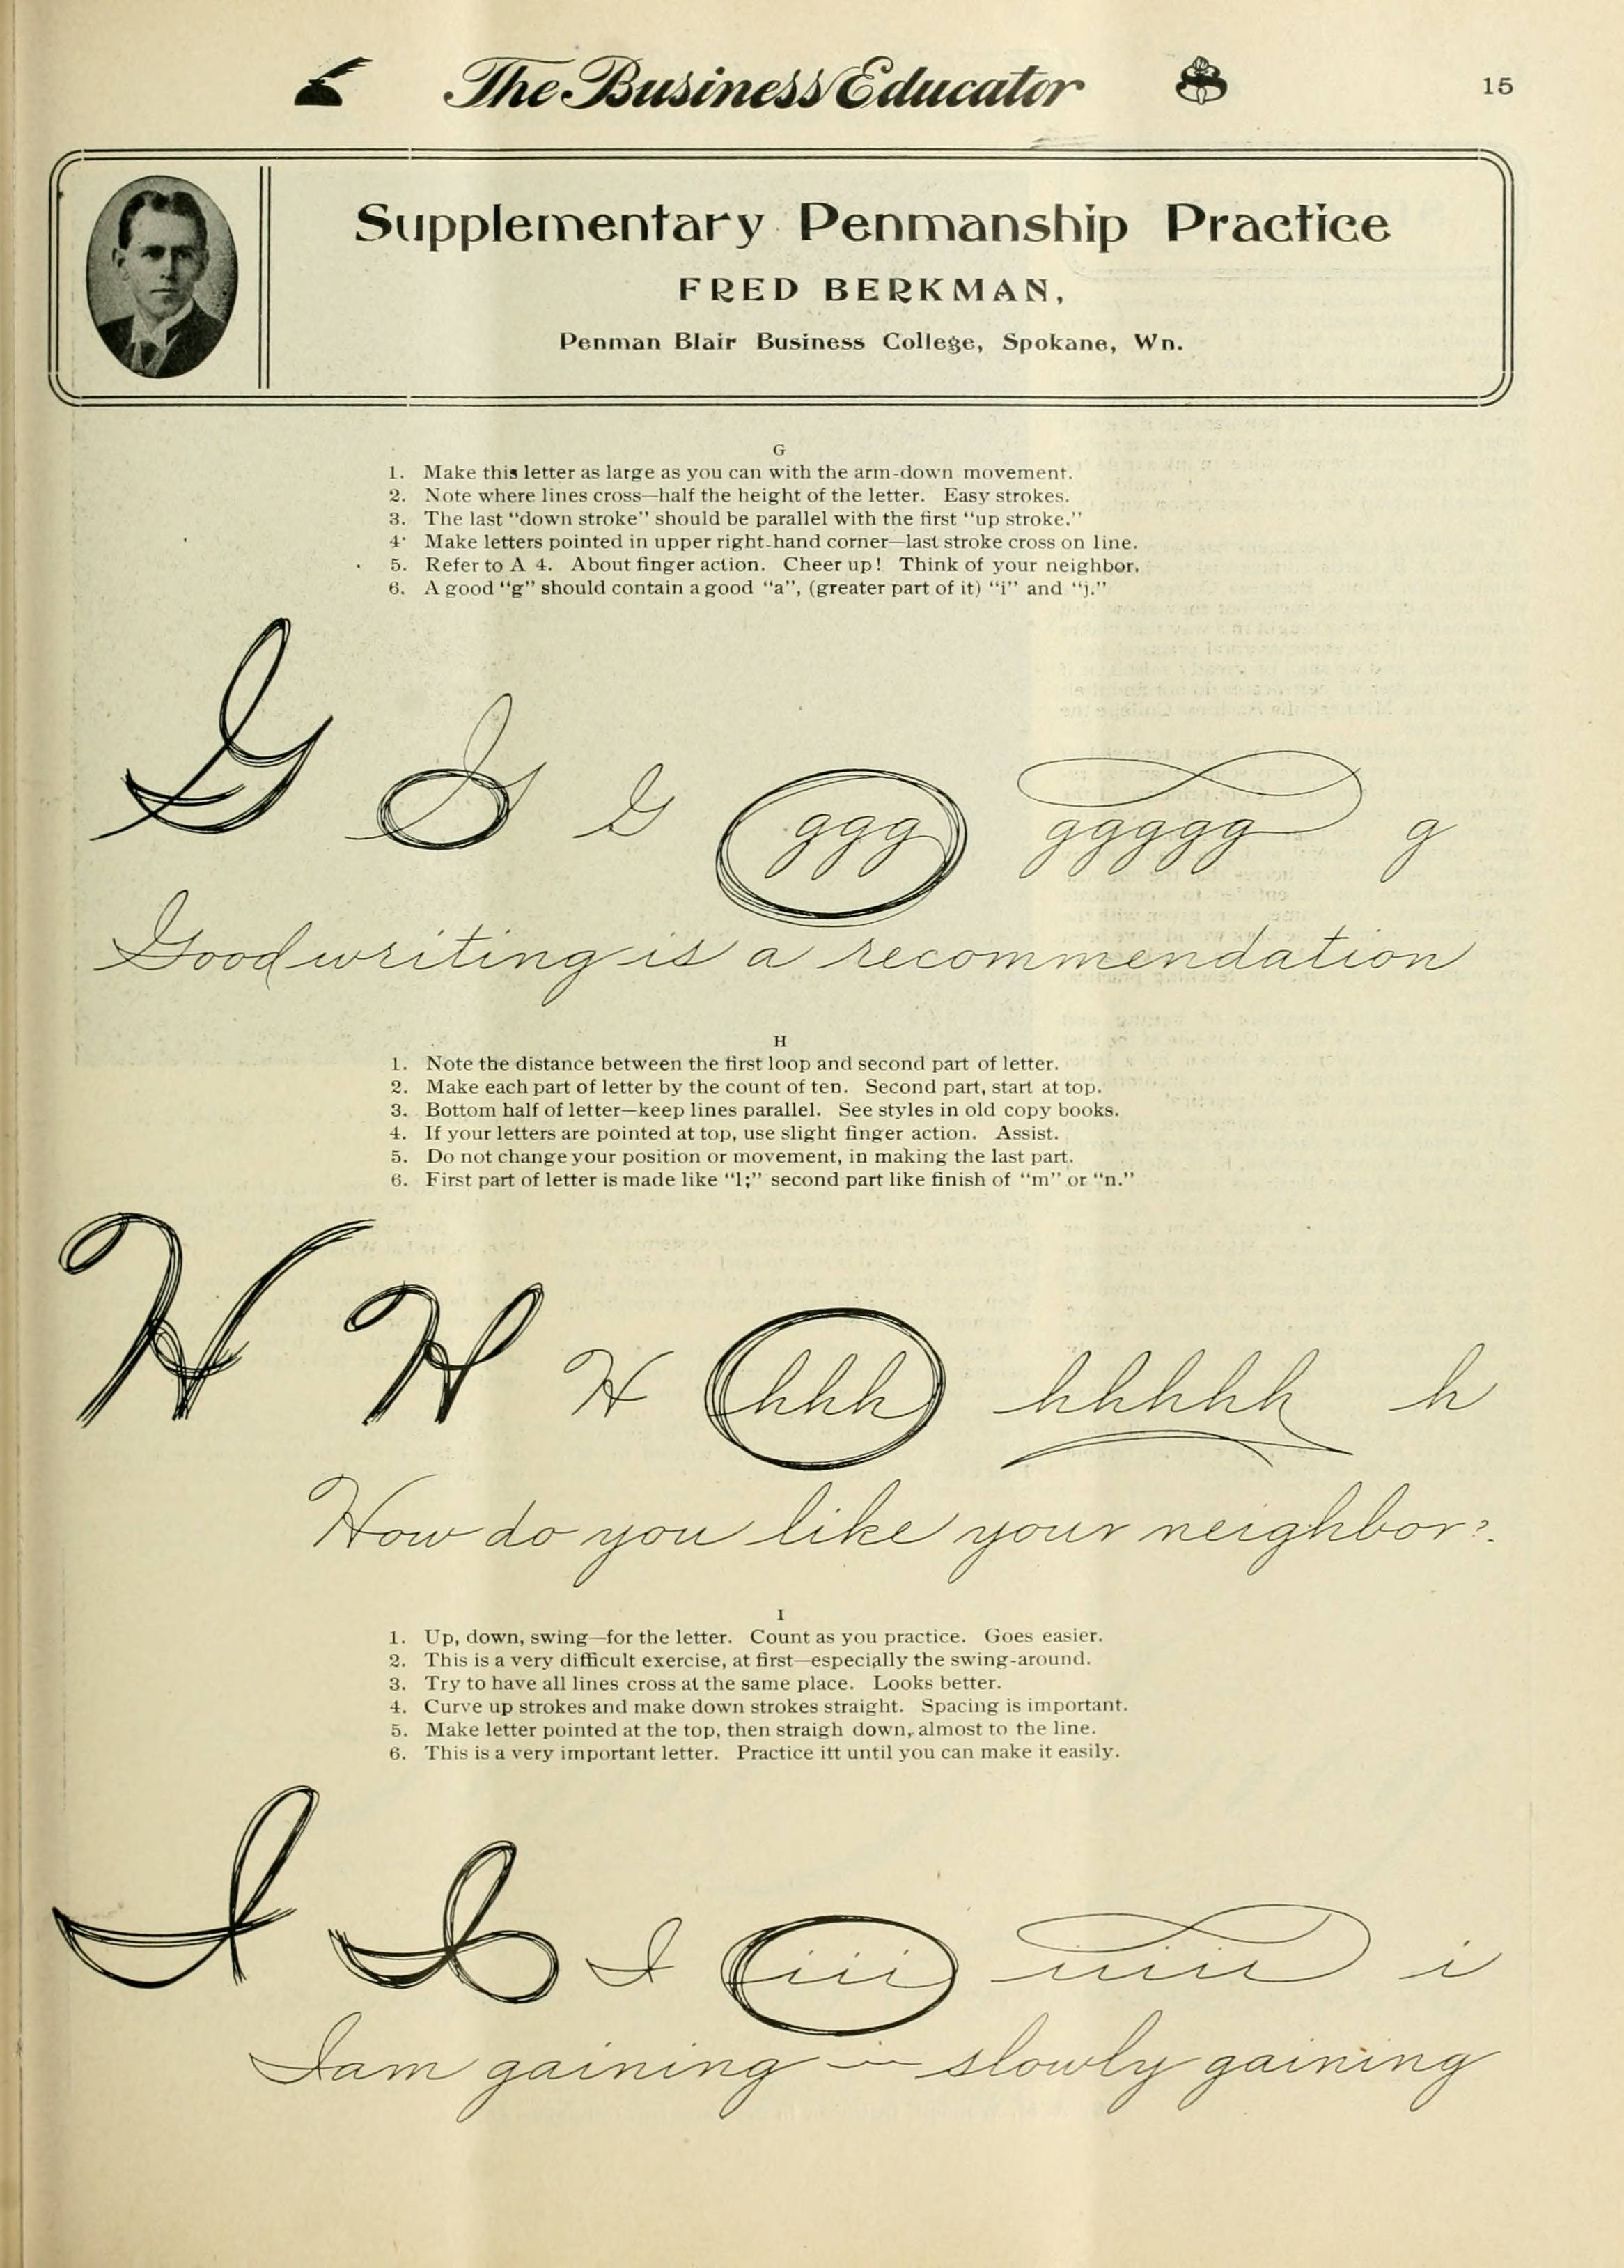 The Business Educator 15
Supplementary Penmanship Practice
FRED BERKMAN,
Penman Blair Business College, Spokane, Wn.
G
1. Make this letter as large as you can with the arm-down movement.
2. Note where lines cross—half the height of the letter. Easy strokes.
3. The last "down stroke" should be parallel with the first "up stroke."
4· Make letters pointed in upper right-hand corner—last stroke cross on line.
5. Refer to A 4. About finger action. Cheer up! Think of your neighbor.
6. A good "g" should contain a good "a", (greater part of it) "i" and "j."
G G G ggg ggggg g
Good writing is a recommendation
H
1. Note the distance between the first loop and second part of letter.
2. Make each part of letter by the count of ten. Second part, start at top.
3. Bottom half of letter—keep lines parallel. See styles in old copy books.
4. If your letters are pointed at top, use slight finger action. Assist.
5. Do not change your position or movement, in making the last part.
6. First part of letter is made like "l;" second part like finish of "m" or "n."
H H H hhh hhhhh h
How do you like your neighbor?
I
1. Up, down, swing—for the letter. Count as you practice. Goes easier.
2. This is a very difficult exercise, at first—especially the swing-around.
3. Try to have all lines cross at the same place. Looks better.
4. Curve up strokes and make down strokes straight. Spacing is important.
5. Make letter pointed at the top, then straigh down, almost to the line.
6. This is a very important letter. Practice itt until you can make it easily.
I I I iii iiiii i
I am gaining — slowly gaining